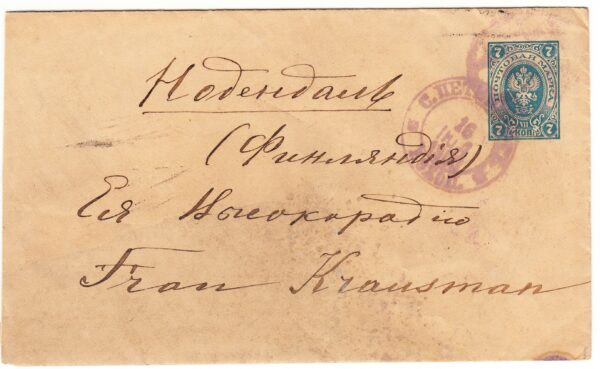 Нодендаль
(Финляндія)
Ея Высокородію
Frau Krausman
7 7
ПОЧТОВАЯ МАРКА
7 7
С.ПЕТ
16